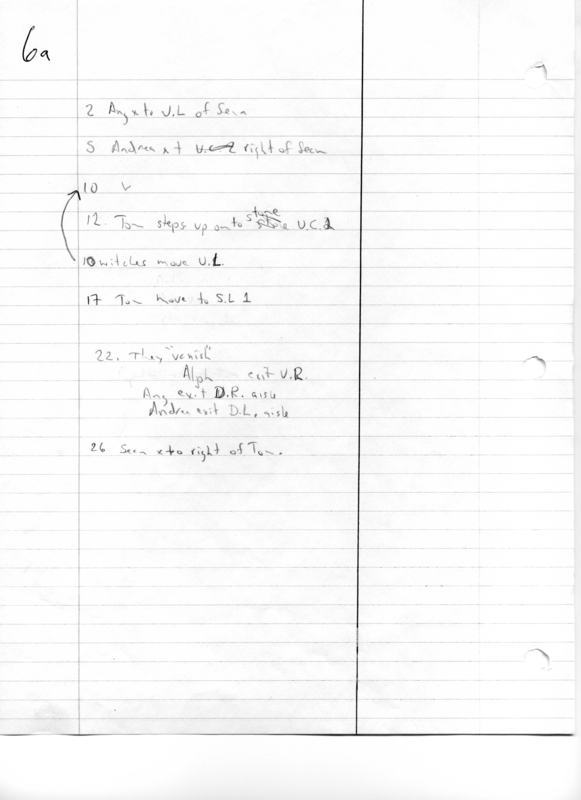 6a
2 Ang x to U.L of Sean
5 Andrea x t right of Sean
10
12. Tom steps up onto stone U.C.1
10 witches move U.L.
17 Tom move to S.L 1
22. They "vanish"
Alph exit U.R.
Ang exit D.R. aisle
Andrea exit D.L. aisle
26 Sean x to right of Tom.